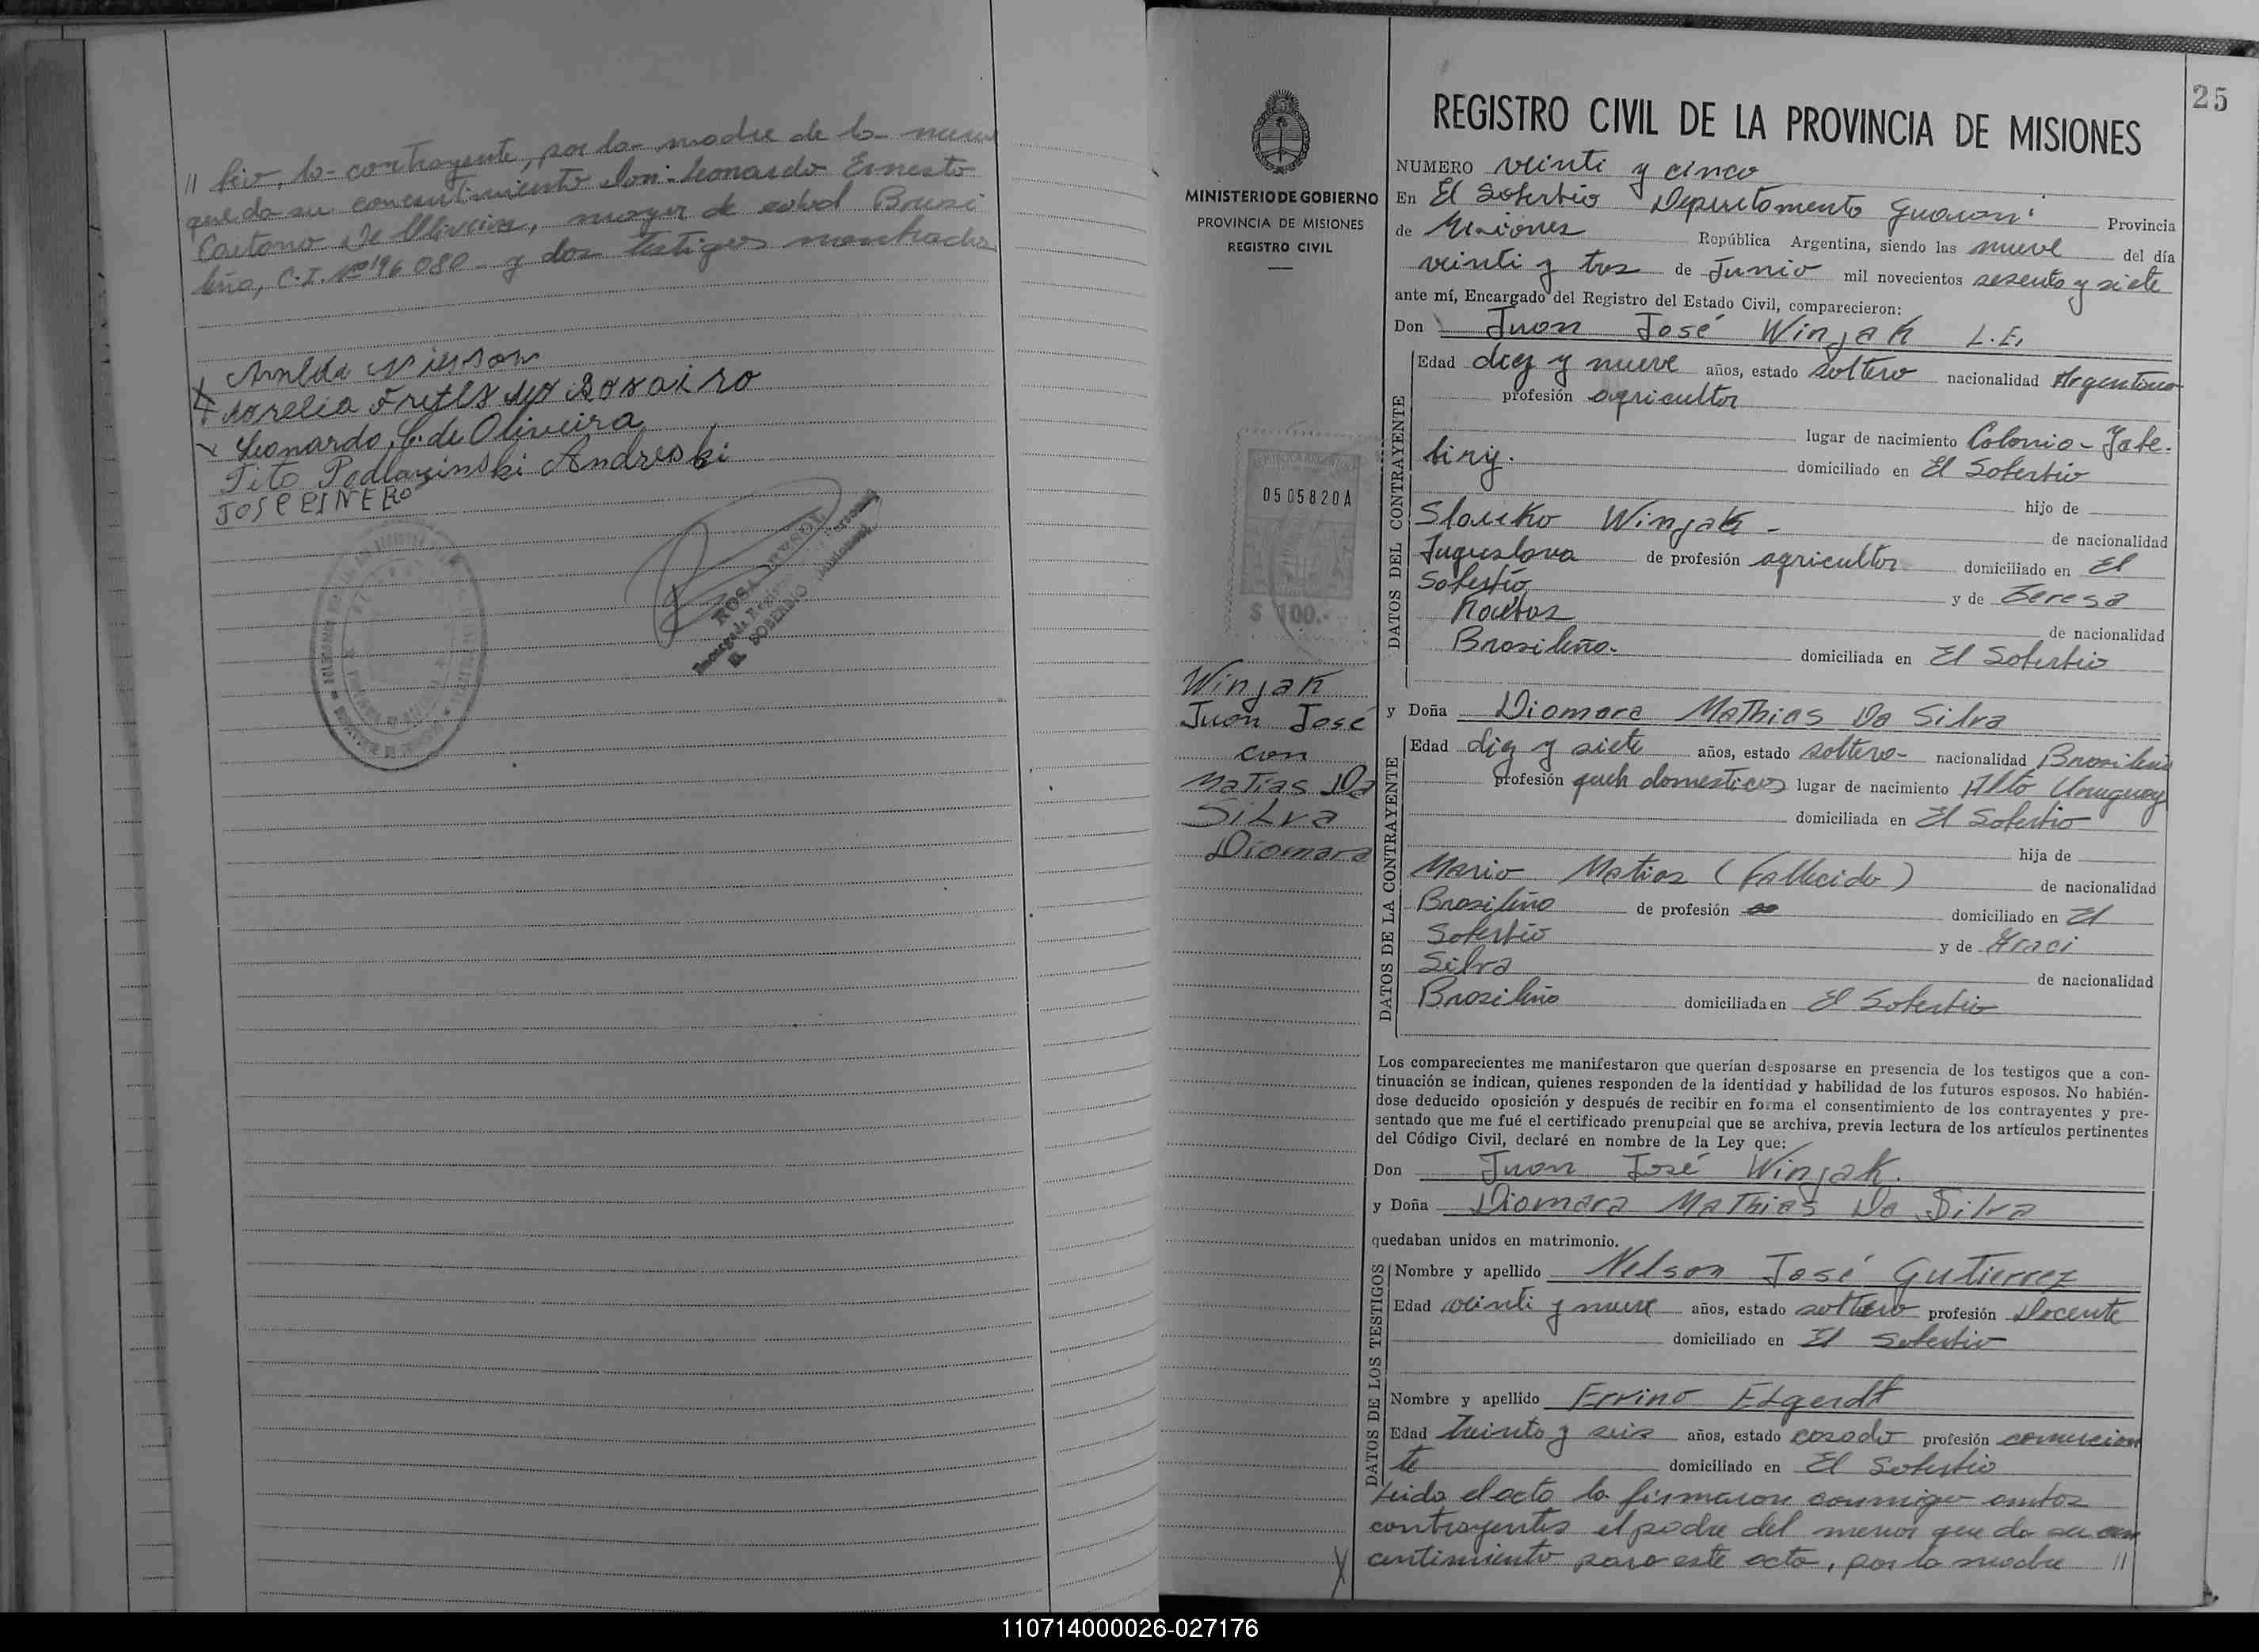 // lio, la contrayente, por la madre de la menor
que da su consentimiento don Leonardo Ernesto
Caetano De Oliveira, mayor de edad Brasi
leño, C.I. Nº 196 080 - y dos testigos
Leonardo C. de Oliveira
Tito Podlazinski Andreski
JOSE PINERO
ROSA
Encargada Registro Personas
EL SOBERBIO (Misiones)
25
MINISTERIO DE GOBIERNO
PROVINCIA DE MISIONES
REGISTRO CIVIL
0505820A
$ 100.-
Winjak
Juan José
con
Matías Da
Silva
Diomara
REGISTRO CIVIL DE LA PROVINCIA DE MISIONES
NUMERO veinti y cinco
En El Soberbio Departamento Guaraní Provincia
de Misiones República Argentina, siendo las nueve del día
veinti y tres de Junio mil novecientos sesenta y siete
ante mí, Encargado del Registro del Estado Civil, comparecieron:
Don Juan José Winjak L.E.
DATOS DEL CONTRAYENTE
Edad diez y nueve años, estado soltero nacionalidad Argentino
profesión agricultor
lugar de nacimiento Colonia - Yabe.
biry. domiciliado en El Soberbio
hijo de
Slavko Winjak - de nacionalidad
Yuguslava de profesión agricultor domiciliado en El
Soberbio y de Teresa
de nacionalidad
Brasileña. domiciliada en El Soberbio
y Doña Diomara Mathias Da Silva
DATOS DE LA CONTRAYENTE
Edad diez y siete años, estado soltera nacionalidad Brasileña
profesión queh domesticos lugar de nacimiento Alto Uruguay
domiciliada en El Soberbio
hija de
Mario Matias (Fallecido) de nacionalidad
Brasileño de profesión domiciliado en El
Soberbio y de Araci
Silva de nacionalidad
Brasileña domiciliada en El Soberbio
Los comparecientes me manifestaron que querían desposarse en presencia de los testigos que a con-
tinuación se indican, quienes responden de la identidad y habilidad de los futuros esposos. No habién-
dose deducido oposición y después de recibir en forma el consentimiento de los contrayentes y pre-
sentado que me fué el certificado prenupcial que se archiva, previa lectura de los artículos pertinentes
del Código Civil, declaré en nombre de la Ley que:
Don Juan José Winjak.
y Doña Diomara Mathias Da Silva
quedaban unidos en matrimonio.
DATOS DE LOS TESTIGOS
Nombre y apellido Nelson José Gutierrez
Edad veinti y nueve años, estado soltero profesión Docente
domiciliado en El Soberbio
Nombre y apellido Ervino Edgerdt
Edad treinta y seis años, estado casado profesión comercian
te domiciliado en El Soberbio
Leida el acta la firmaron conmigo ambos
contrayentes el padre del menor que da su con
centimiento para este acto, por la madre //
110714000026-027176